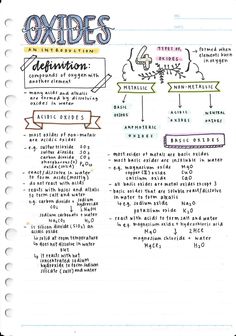 OXIDES
AN INTRODUCTION
definition:
compounds of oxygen with
another element
→ many acids and alkalis
are formed by dissolving
oxides in water
ACIDIC OXIDES
→ most oxides of non-metals
are acidic oxides
→ e.g. sulfur trioxide SO3
sulfur dioxide SO2
carbon dioxide CO2
phosphorus(V)
oxide
→ react/dissolve in water
to form acids (mostly)
→ do not react with acids
→ reacts with bases and alkalis
to form salt and water
→ e.g. carbon dioxide + sodium
hydroxide
CO2
NaOH
sodium carbonate + water
Na2CO3
H2O
→ silicon dioxide (SiO2) an
acidic oxide
↳ solid at room temperature
↳ does not dissolve in water
BUT
it reacts with hot
concentrated sodium
hydroxide to form sodium
silicate (salt) and water
4
TYPES OF
OXIDES
formed when
elements burn
in oxygen
METALLIC
NON-METALLIC
BASIC
OXIDES
AMPHOTERIC
OXIDES
ACIDIC
OXIDES
NEUTRAL
OXIDES
BASIC OXIDES
→ most oxides of metals are basic oxides
→ most basic oxides are insoluble in water
→ e.g. magnesium oxide MgO
copper (II) oxide CuO
calcium oxide CaO
→ all basic oxides are metal oxides
→ basic oxides that are soluble react/dissolve
in water to form alkalis
↳ e.g. sodium oxide Na2O
potassium oxide K2O
→ react with acids to form salt and water
↳ e.g. magnesium oxide + hydrochloric acid
MgO
2HCl
magnesium chloride + water
MgCl2
H2O